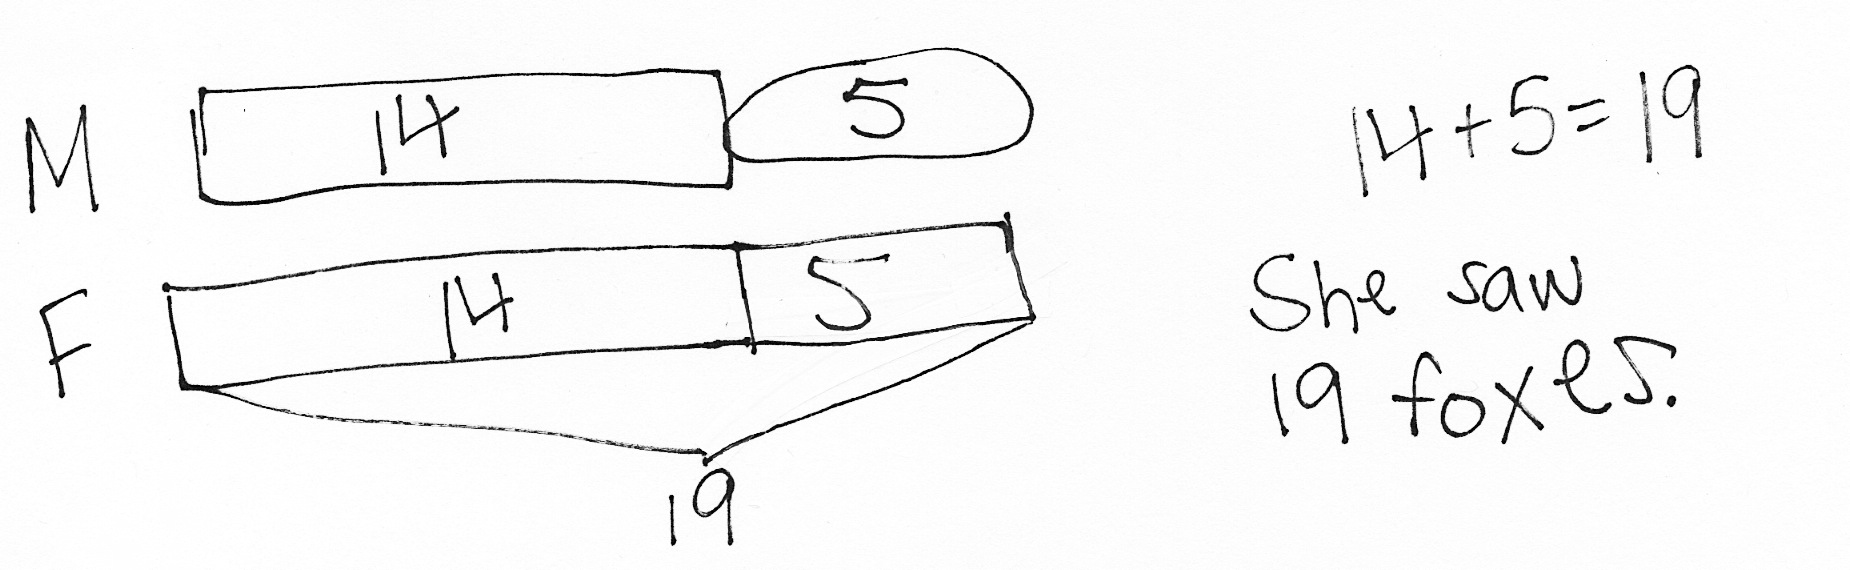 M 14 5
14+5=19
F 14 5
19
She saw
19 foxes.